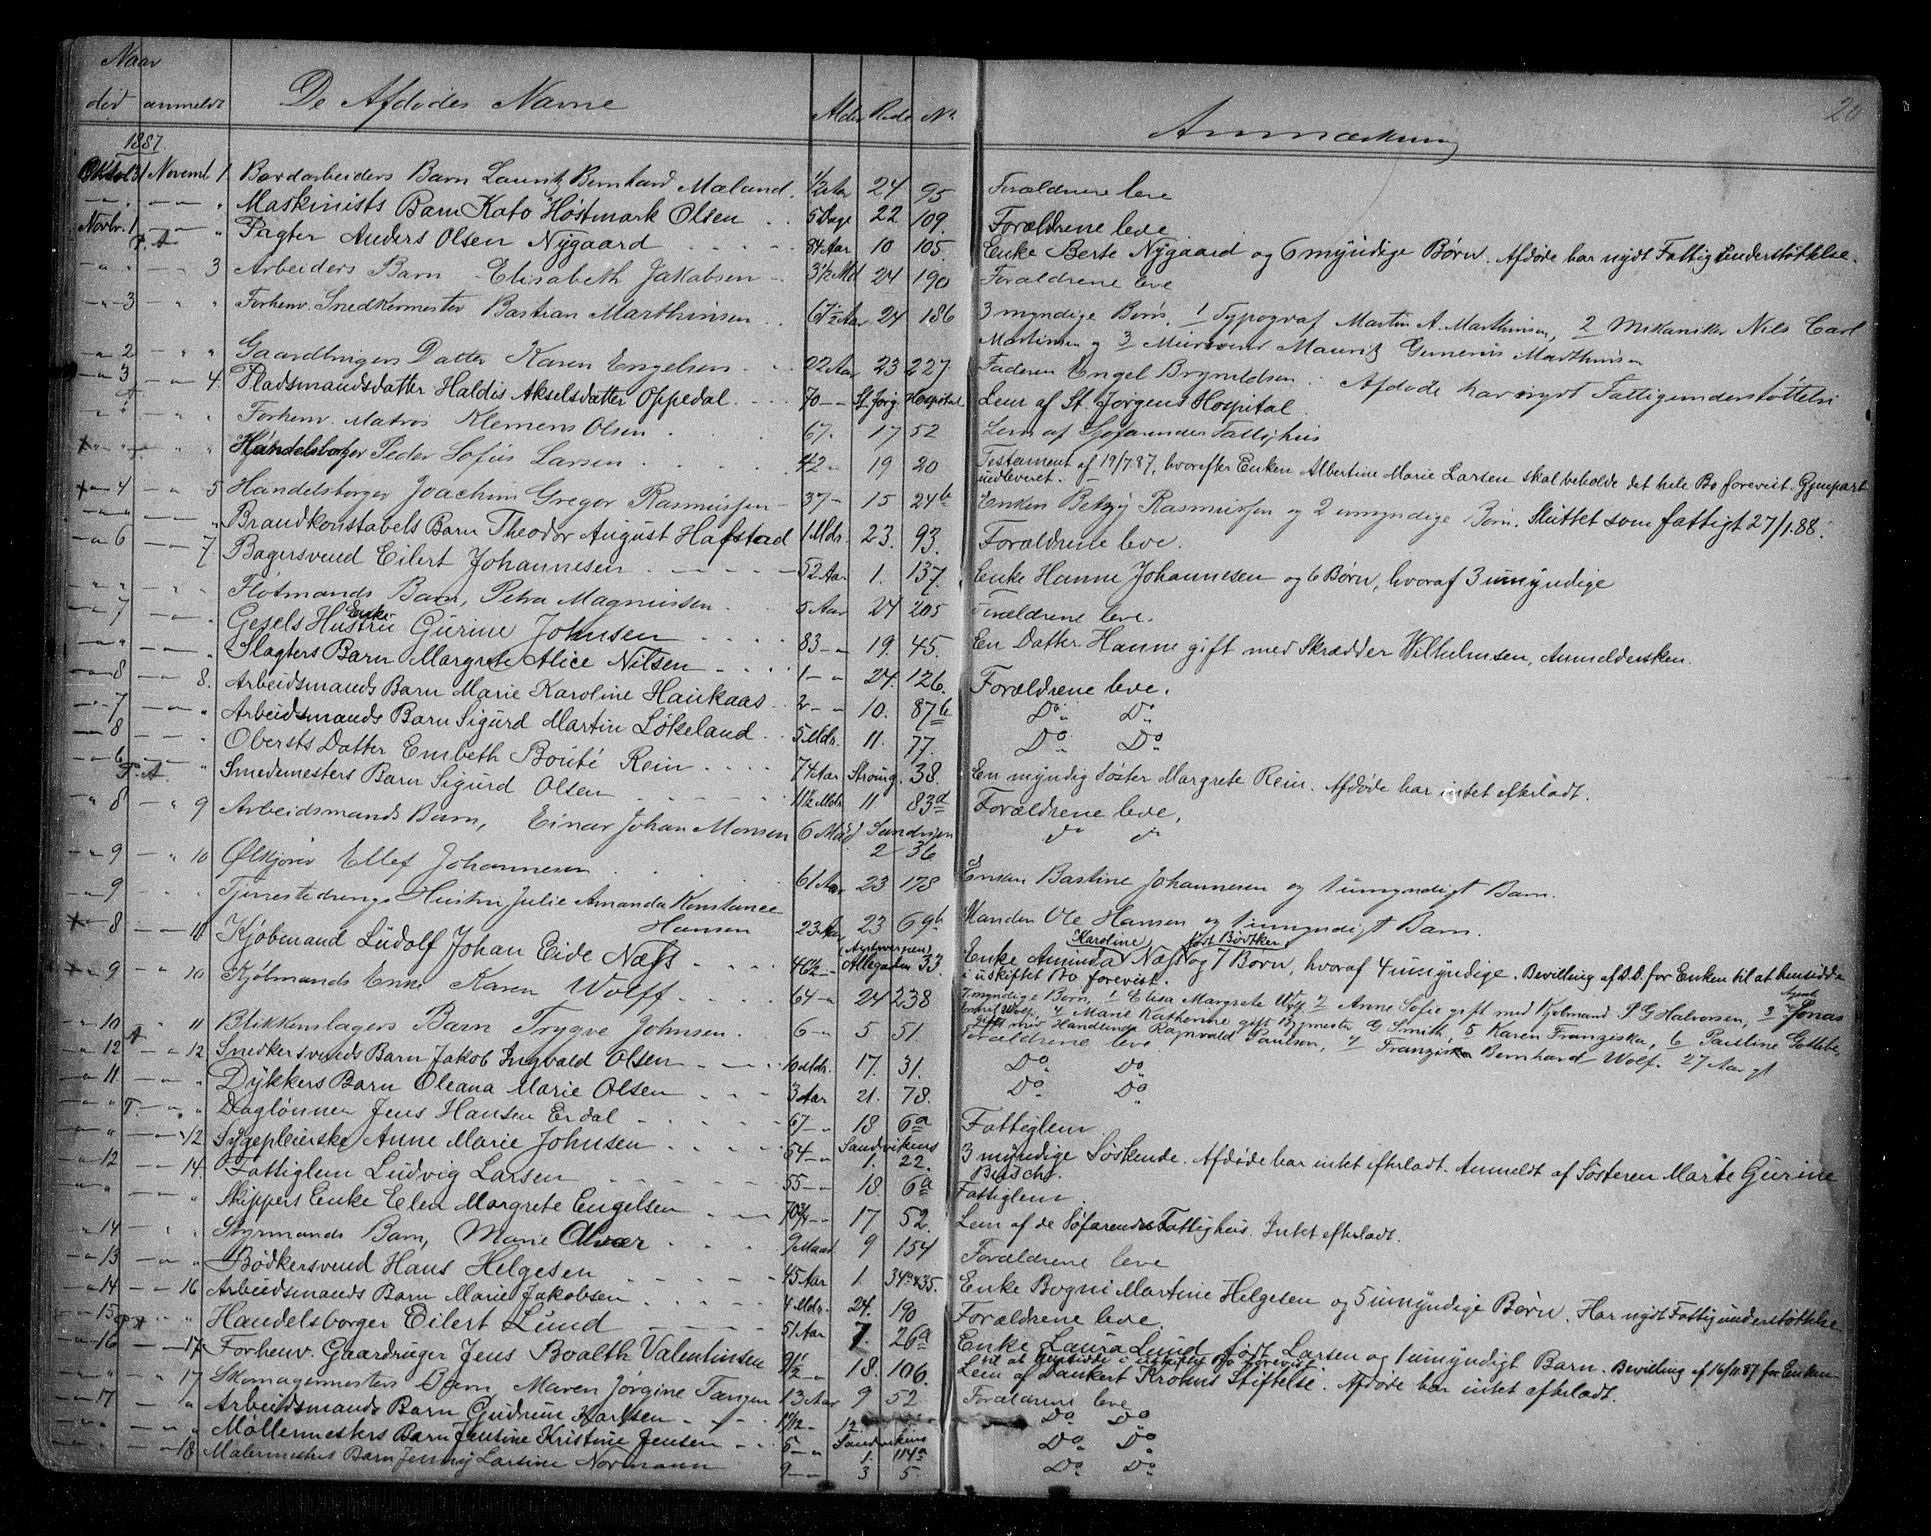 Naar
død anmeldt De Afdødes Navne Alder Rode No Anmærkning 20
1887
Oktob 31 Novembr 1 Bordarbeiders Barn Lauritz Bernhard Maland 1/2 Aar 24 95 Forældrene leve
" " — " Maskinists Barn Kato Høstmark Olsen 5 Dage 22 109. Forældrene leve.
Novbr. 1 — " Pagter Anders Olsen Nygaard 84 Aar 10 105. Enke Berte Nygaard og 6 myndige Børn. Afdøde har nydt Fattigunderstøttelse.
F. A.
" " — 3 Arbeiders Barn Elisabeth Jakobsen 3 1/2 Md 24 190 Forældrene leve
" 3 " " Forhenv. Snedkermester Bastian Marthinsen 67 1/2 Aar 24 186 3 myndige Børn, 1 Typograf Martin A. Marthinsen, 2 Mikaniker Nils Carl
Martinsen og 3 Mursvend Mauritz Marthinsen
" 2 " " Gaardbrugers Datter Karen Engelsen 22 Aar 23 227. Faderen Engel Brynildsen. Afdøde har nydt Fattigunderstøttelse
" 3 — 4. Pladsmandsdatter Haldis Akselsdatter Oppedal 70 — St. Jørg. Hospital Lem af St. Jørgens Hospital.
" " Forhenv. Matros Klemens Olsen 67. 17 52 Lem af Søfarendes Fattighus
" " Handelsborger Peder Sofus Larsen 42 " 19 20 Testament af 19/7.87, hvorefter Enken Albertine Marie Larsen skal beholde det hele Bo forevist. Gjenpart
udleveret. —
" 4 — " 5 Handelsborger Joachim Gregor Rasmussen 37 — 15 24b Enken Betzy Rasmussen og 2 umyndige Børn. Sluttet som fattigt 27/1.88.
" " — " Brandkonstabels Barn Theodor August Hafstad 1 Mdr. 23. 93. Forældrene leve.
" 6 — 7 Bagersvend Eilert Johannesen 52 Aar 1. 137. Enke Hanne Johannesen og 6 Børn, hvoraf 3 umyndige
" " — " Fløtmands Barn, Petra Magnussen 5 Aar 24 205 Forældrene leve.
" 7 — " Gesels Hustru Enke Gurine Johnsen 83 — " 19. 45. En Datter Hanne gift med Skrædder Wilhelmsen, Anmeldersken.
" " — " Slagters Barn Margrete Alice Nilsen 1 — " 24. 126. Forældrene leve.
" 8 — " 8. Arbeidsmands Barn Marie Karoline Haukaas 2 — " 10. 87b Do Do
" 7 — " Arbeidsmands Barn Sigurd Martin Løkeland 5 Mdr. 11. 77. Do Do
— 8 " Obersts Datter Embeth Bouté Rein 74 Aar Strøng. 38. En myndig Søster Margrete Rein. Afdøde har intet efterladt.
" 6 — " Smedemesters Barn Sigurd Olsen 11 1/2 Mdr 11 83d Forældrene leve.
F. A.
" 8 — " 9 Arbeidsmands Barn, Einar Johan Monsen 6 Maad Sandvigen 2 36 do do
" 9 — " 10 Ølkjører Ellef Johannesen 61 Aar 23 178 Enken Bastine Johannesen og 1 umyndigt Barn.
" 9 " " Tjenestedrengs Hustru Julie Amanda Konstance
Hansen 23 Aar 23 69b Manden Ole Hansen og 1 umyndigt Barn.
" 8 — 11 Kjøbmand Ludolf Johan Eide Næss 46 1/2 — Allegaden 33. Enke Aminda Karoline Næss født Bødtker og 7 Børn, hvoraf 4 umyndige. Bevilling af D.D. for Enken til at hensidde
i uskiftet Bo forevist.
" 9 — 10 Kjøbmands Enke Karen Wolff 64 — " 24 238 7 myndige Børn, 1 Elisa Margrete Wolf 2 Anne Sofie gift med Kjøbmand P G Halvorsen, 3 Agent Jonas
Wolf, 4 Marie Kathrine gift Bymester G. Smith, 5 Karen Franziska, 6 Pauline Gottlibe,
gift med Handlende Ragnvald Paulson, 7 Franziska Bernhard Wolf. 27 Aar gl
" 10 — " 11 Blikkenslagers Barn Trygve Johnsen 6 — " 5 51. Forældrene leve
" 12 — " 12 Snedkersvends Barn Jakob Ingvald Olsen 10 Mdr. 17. 31. Do Do
" 11 — " Dykkers Barn Oleana Marie Olsen 3 Aar 21. 78. Do Do
" " F. " Daglønner Jens Hansen Erdal 67 — " 18 6a Fattiglem.
" " — " 12 Sygepleierske Anne Marie Johnsen 54 — " Sandvikens 1. 22. 3 myndige Søskende. Afdøde har intet efterladt. Anmeldt af Søsteren Marte Gurine
" 12 — " 14. Fattiglem Ludvig Larsen 55 — " 18 6a Fattiglem.
" " " " Skippers Enke Elen Margrete Engelsen 70 3/4 — 17 52. Lem af de Søfarendes Fattighus. Intet efterladt.
" 14 " " Styrmands Barn, Marie Alvær 9 Maad. 9 154 Forældrene leve
" 13 — " Bødkersvend Hans Helgesen 45 Aar 1. 34a&35. Enke Bogni Martine Helgesen og 5 umyndige Børn. Har nydt Fattigunderstøttelse
" 14 — " 16 Arbeidsmands Barn Marie Jakobsen 4 Mdr. 24. 190 Forældrene leve.
" 15 " " Handelsborger Eilert Lund 51 Aar 7. 26a Enke Laura Lund født Larsen og 1 umyndigt Barn. Bevilling af 16/11.87 for Enken
til at hensidde i uskiftet Bo forevist.
" 16 — " 17 Forhenv. Gaardbruger Jens Boalth Valentinsen 91 1/2 — " 18. 106. Lem af Dankert Krohns Stiftelse. Afdøde har intet efterladt.
" " — " 17 Skomagermesters Barn, Maren Jørgine Tangen 13 Aar 9 52 Forældrene leve
" 17 " Arbeidsmands Barn Gudrun Karlsen Do Do
" " — " Møllermesters Barn Jensine Kristine Jensen 5 — " Sandvikens 1. 114a Do Do
" " — 18 Malermesters Barn Jenny Larsine Normann 9 — " 3 5 Do Do